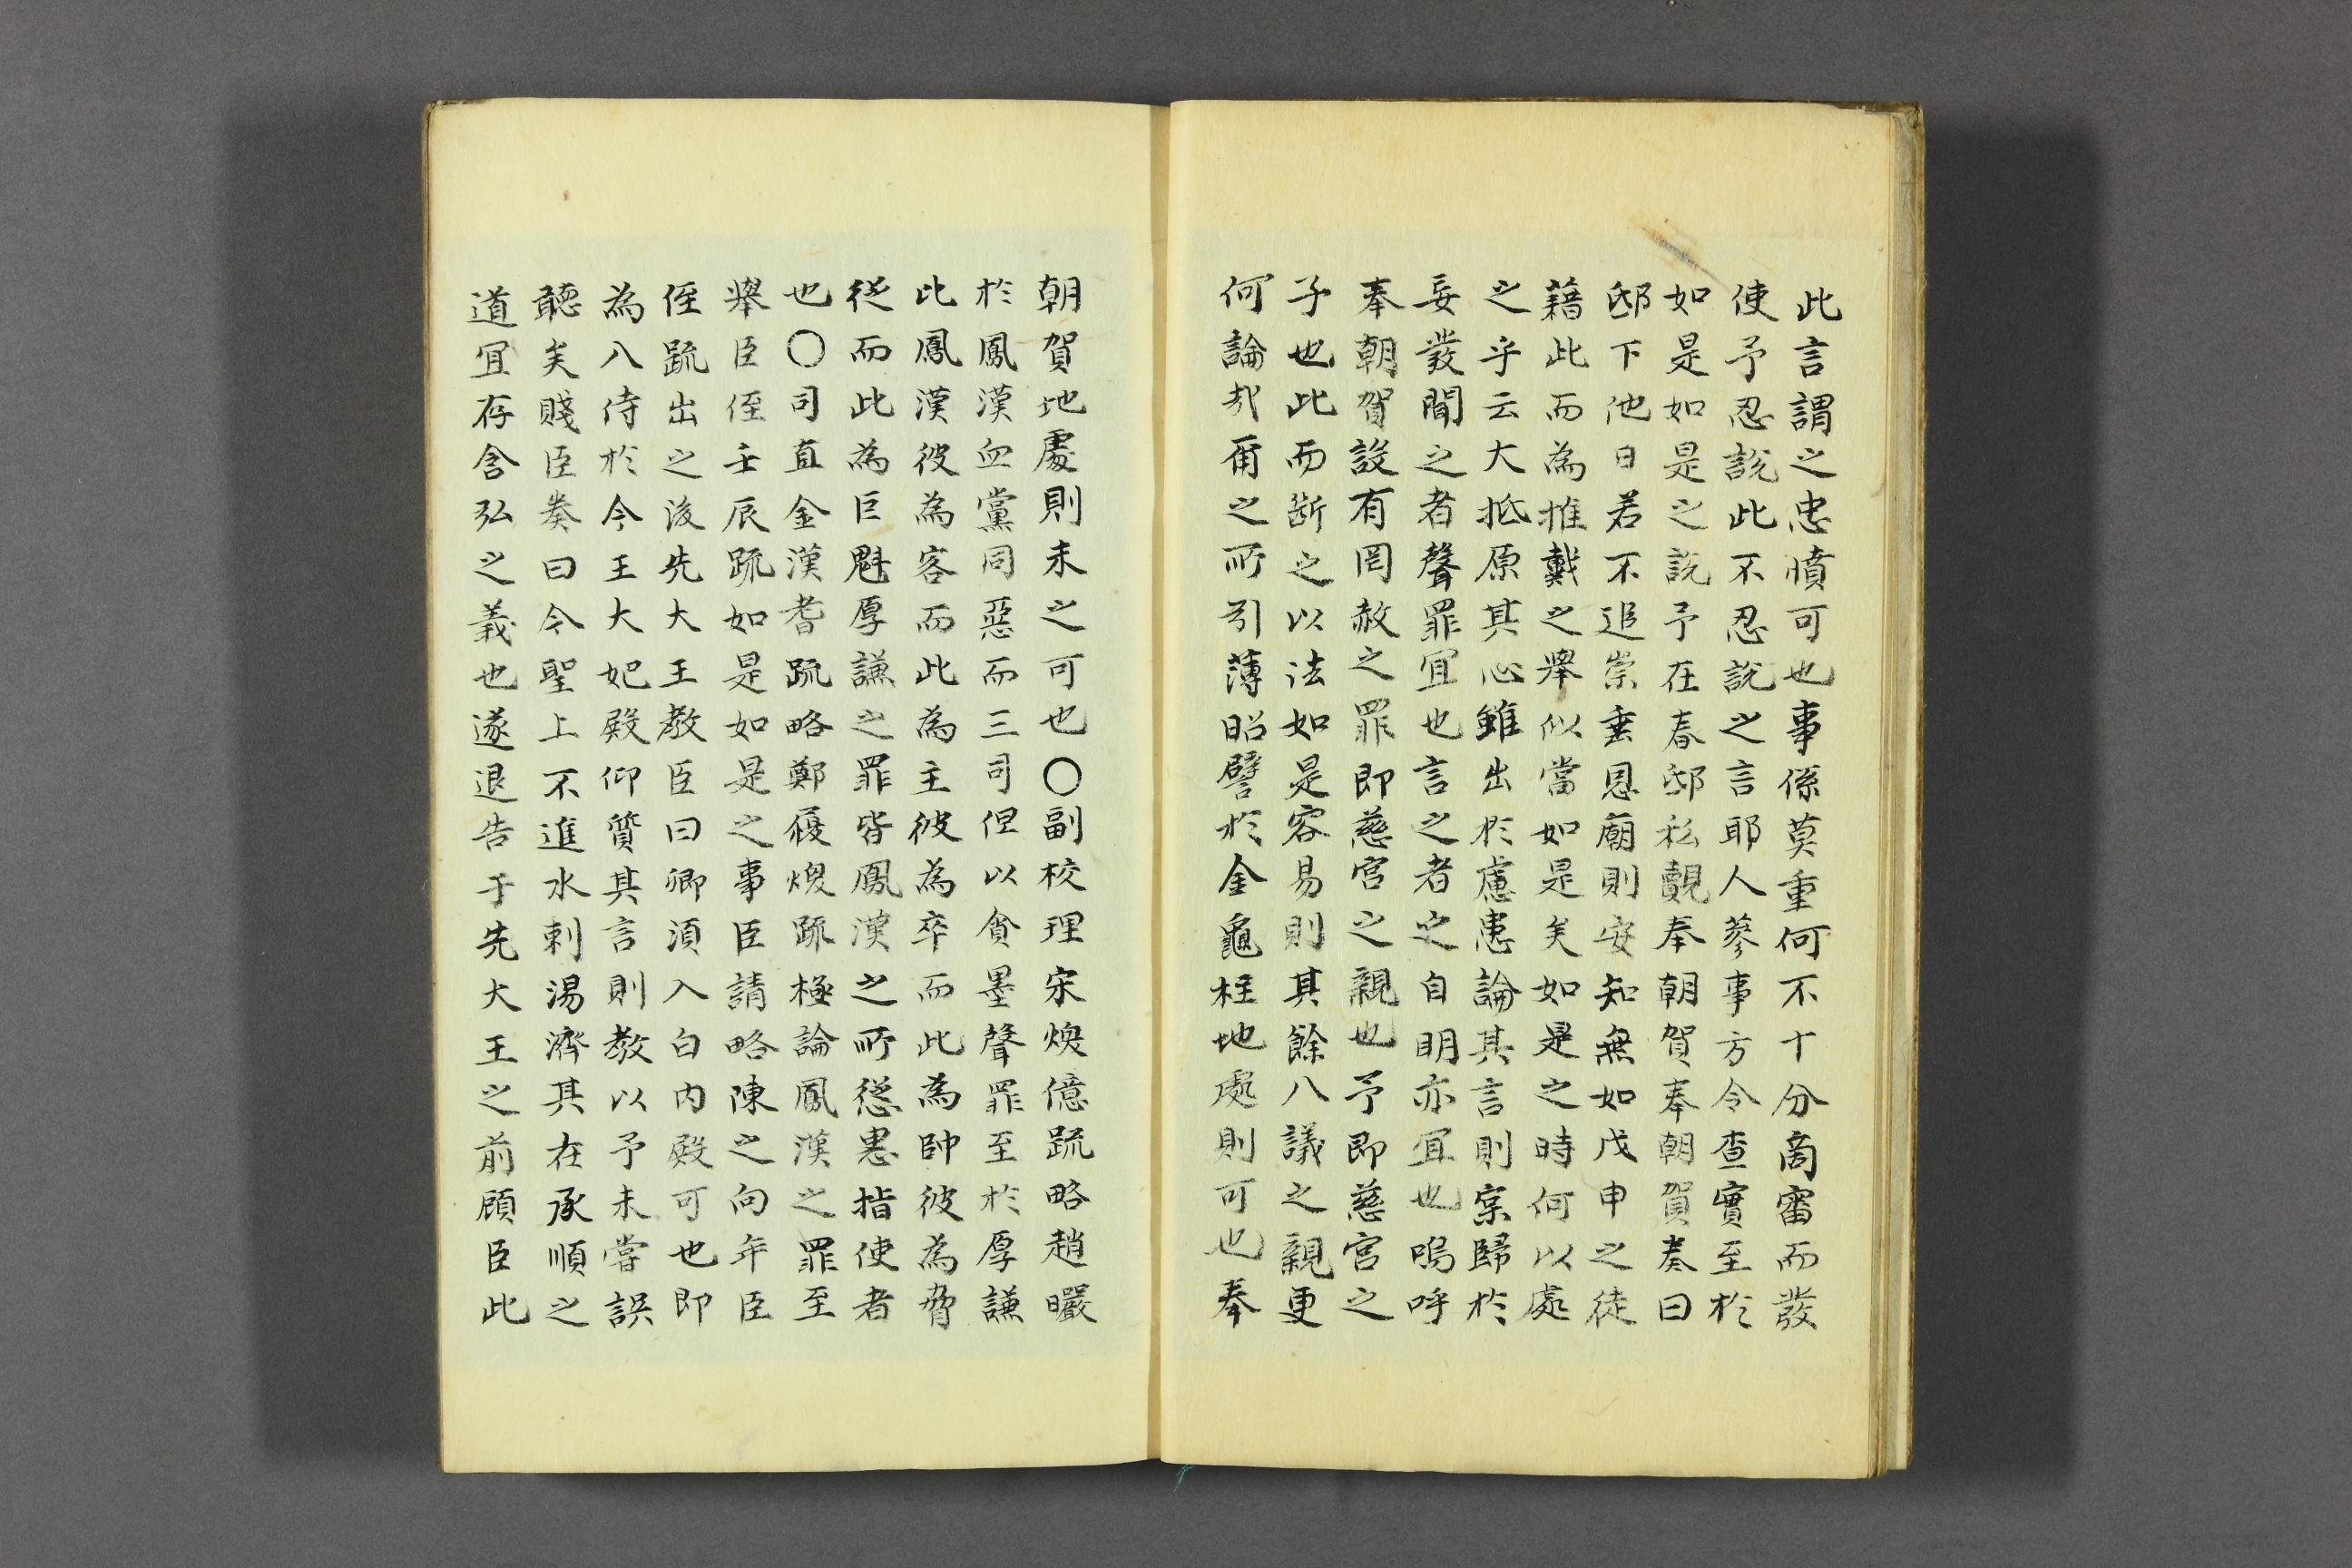 此言謂之忠憤可也事係莫重何不十分商審而發
使予忍說此不忍說之言耶人蔘事方令查實至於
如是如是之說予在春邸私覿奉朝賀奉朝賀奏曰
邸下他日若不追崇垂恩廟則安知無如戊申之徒
藉此而為推戴之舉似當如是矣如是之時何以處
之乎云大抵原其心雖出於慮患論其言則寀歸於
妄發聞之者聲罪宜也言之者之自明亦宜也嗚呼
奉朝賀設有罔赦之罪即慈宮之親也予即慈宮之
子也此而斷之以法如是容易則其餘八議之親更
何論哉甭之所引薄昭譬於金龜柱地處則可也奉
朝賀地處則未之可也○副校理宋煥億疏略趙曮
於鳳漢血黨同惡而三司但以貪墨聲罪至於厚謙
比鳳漢彼為客而此為主彼為卒而此為帥彼為脅
從而此為巨魁厚謙之罪皆鳳漢之所慫恿指使者
也○司直金漢耆疏略鄭履煥疏極論鳳漢之罪至
舉臣侄壬辰疏如是如是之事臣請略陳之向年臣
侄疏出之後先大王教臣曰卿須入白內殿可也即
為入侍於今王大妃殿仰質其言則教以予未嘗誤
聽矣賤臣奏曰令聖上不進水剌湯濟其在承順之
道宜存含弘之義也遂退告于先大王之前顧臣此